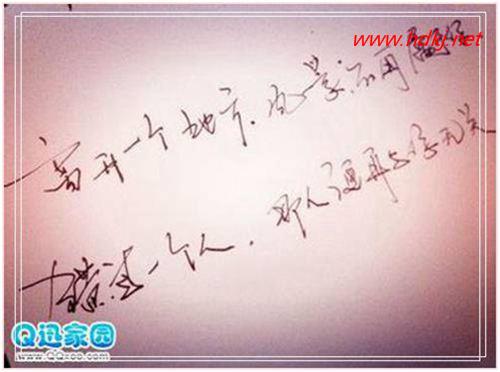 www.hdkj.net
离开一个地方，风景不再属
错过一个人，那人便再与你无关
Q迅家园
www.QQxoo.com